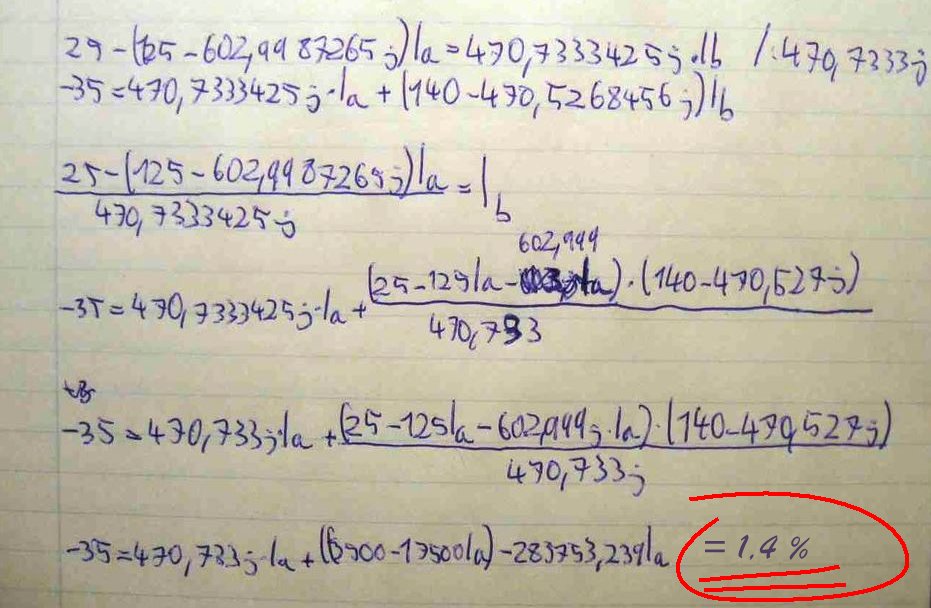 25-(125-602,9987265j)Ia=470,7333425j.Ib /:470,7333j
-35=470,7333425j·Ia+(140-470,5268456j)Ib
25-(125-602,9987265j)Ia
470,7333425j
=Ib
602,999
(25-125Ia-Ia)·(140-470,527j)
-35=470,7333425j·Ia+
470,733
-35=470,733j·Ia+(25-125Ia-602,999j·Ia)·(140-470,527j)
470,733j
-35=470,733j·Ia+(3500-17500Ia)-283753,239Ia = 1.4 %